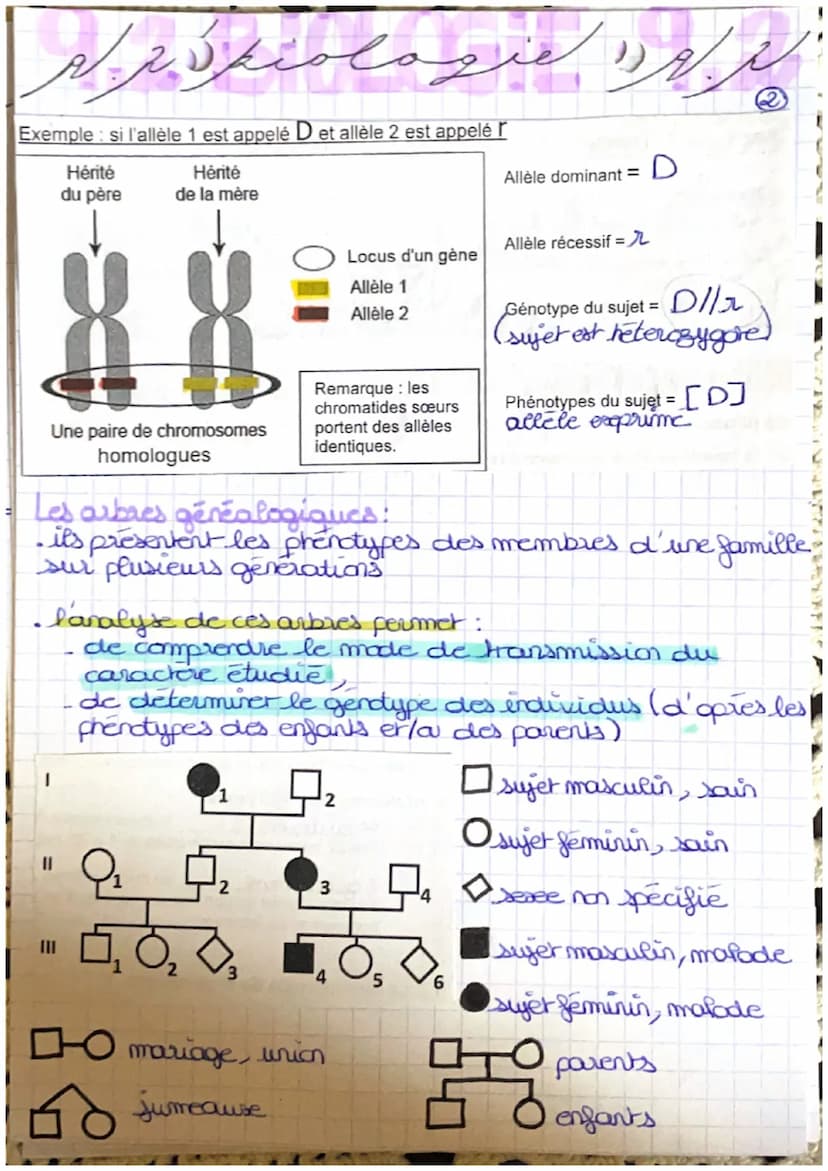 A.2 Biologie A.2
9.2. BIOLOGIE 9.2.
2
Exemple : si l'allèle 1 est appelé D et allèle 2 est appelé r
Hérité du père
Hérité de la mère
Locus d'un gène
Allèle 1
Allèle 2
Remarque : les
chromatides sœurs
portent des allèles
identiques.
Une paire de chromosomes
homologues
Allèle dominant = D
Allèle récessif = r
Génotype du sujet = D//r
(sujet est hétérozygore)
Phénotypes du sujet = [D]
allèle exprimé
Les arbres généalogiques :
. ils présentent les phénotypes des membres d'une famille
sur plusieurs générations
. l'analyse de ces arbres permet :
- de comprendre le mode de transmission du
caractère étudié,
- de déterminer le génotype des individus (d'après les
phénotypes des enfants et/a des parents)
I
1
2
II
1
2
3
4
III
1
2
3
4
5
6
sujet masculin, sain
sujet féminin, sain
sexe non spécifié
sujet masculin, malade
sujet féminin, malade
mariage, union
jumeause
parents
enfants